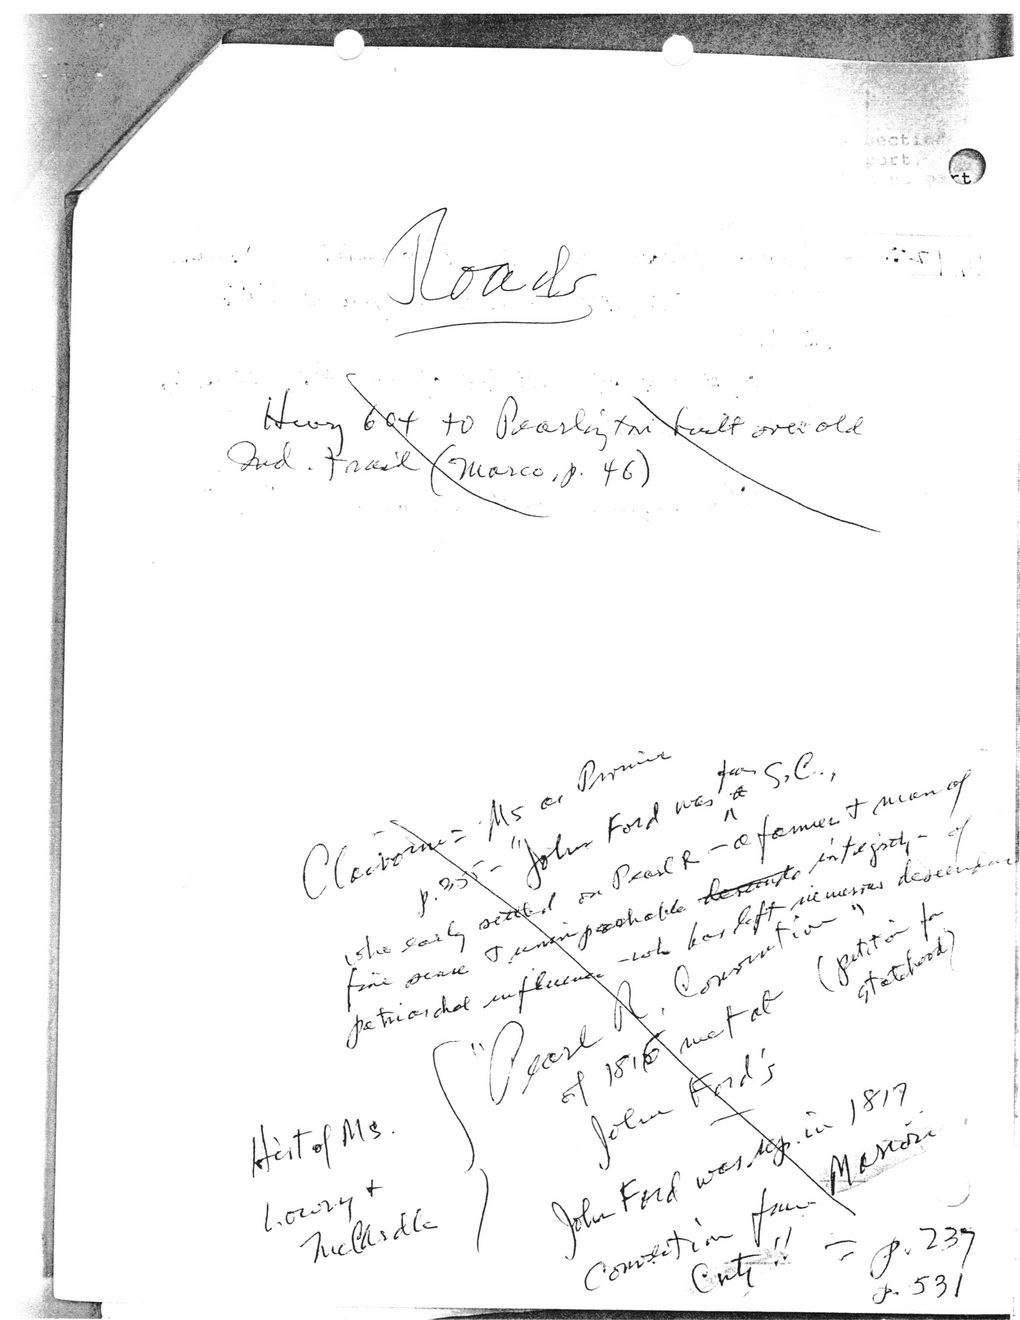 Roads
Hwy 604 to Pearlington built over old
Ind. trail (Marco, p. 46)
Claiborne = Ms as Province
p. 355 - "John Ford was from S.C.,
who early settled on Pearl R - a farmer & man of
fine sense & unimpeachable integrity - of
patriarchal influence - who has left numerous descendants
"Pearl R. Convention"
of 1816 met at (petition for
statehood)
John Ford's
Hist of Ms.
Lowry &
McCardle
John Ford was rep. in 1817
Convention from Marion
Cnty!! = p. 237
p. 531